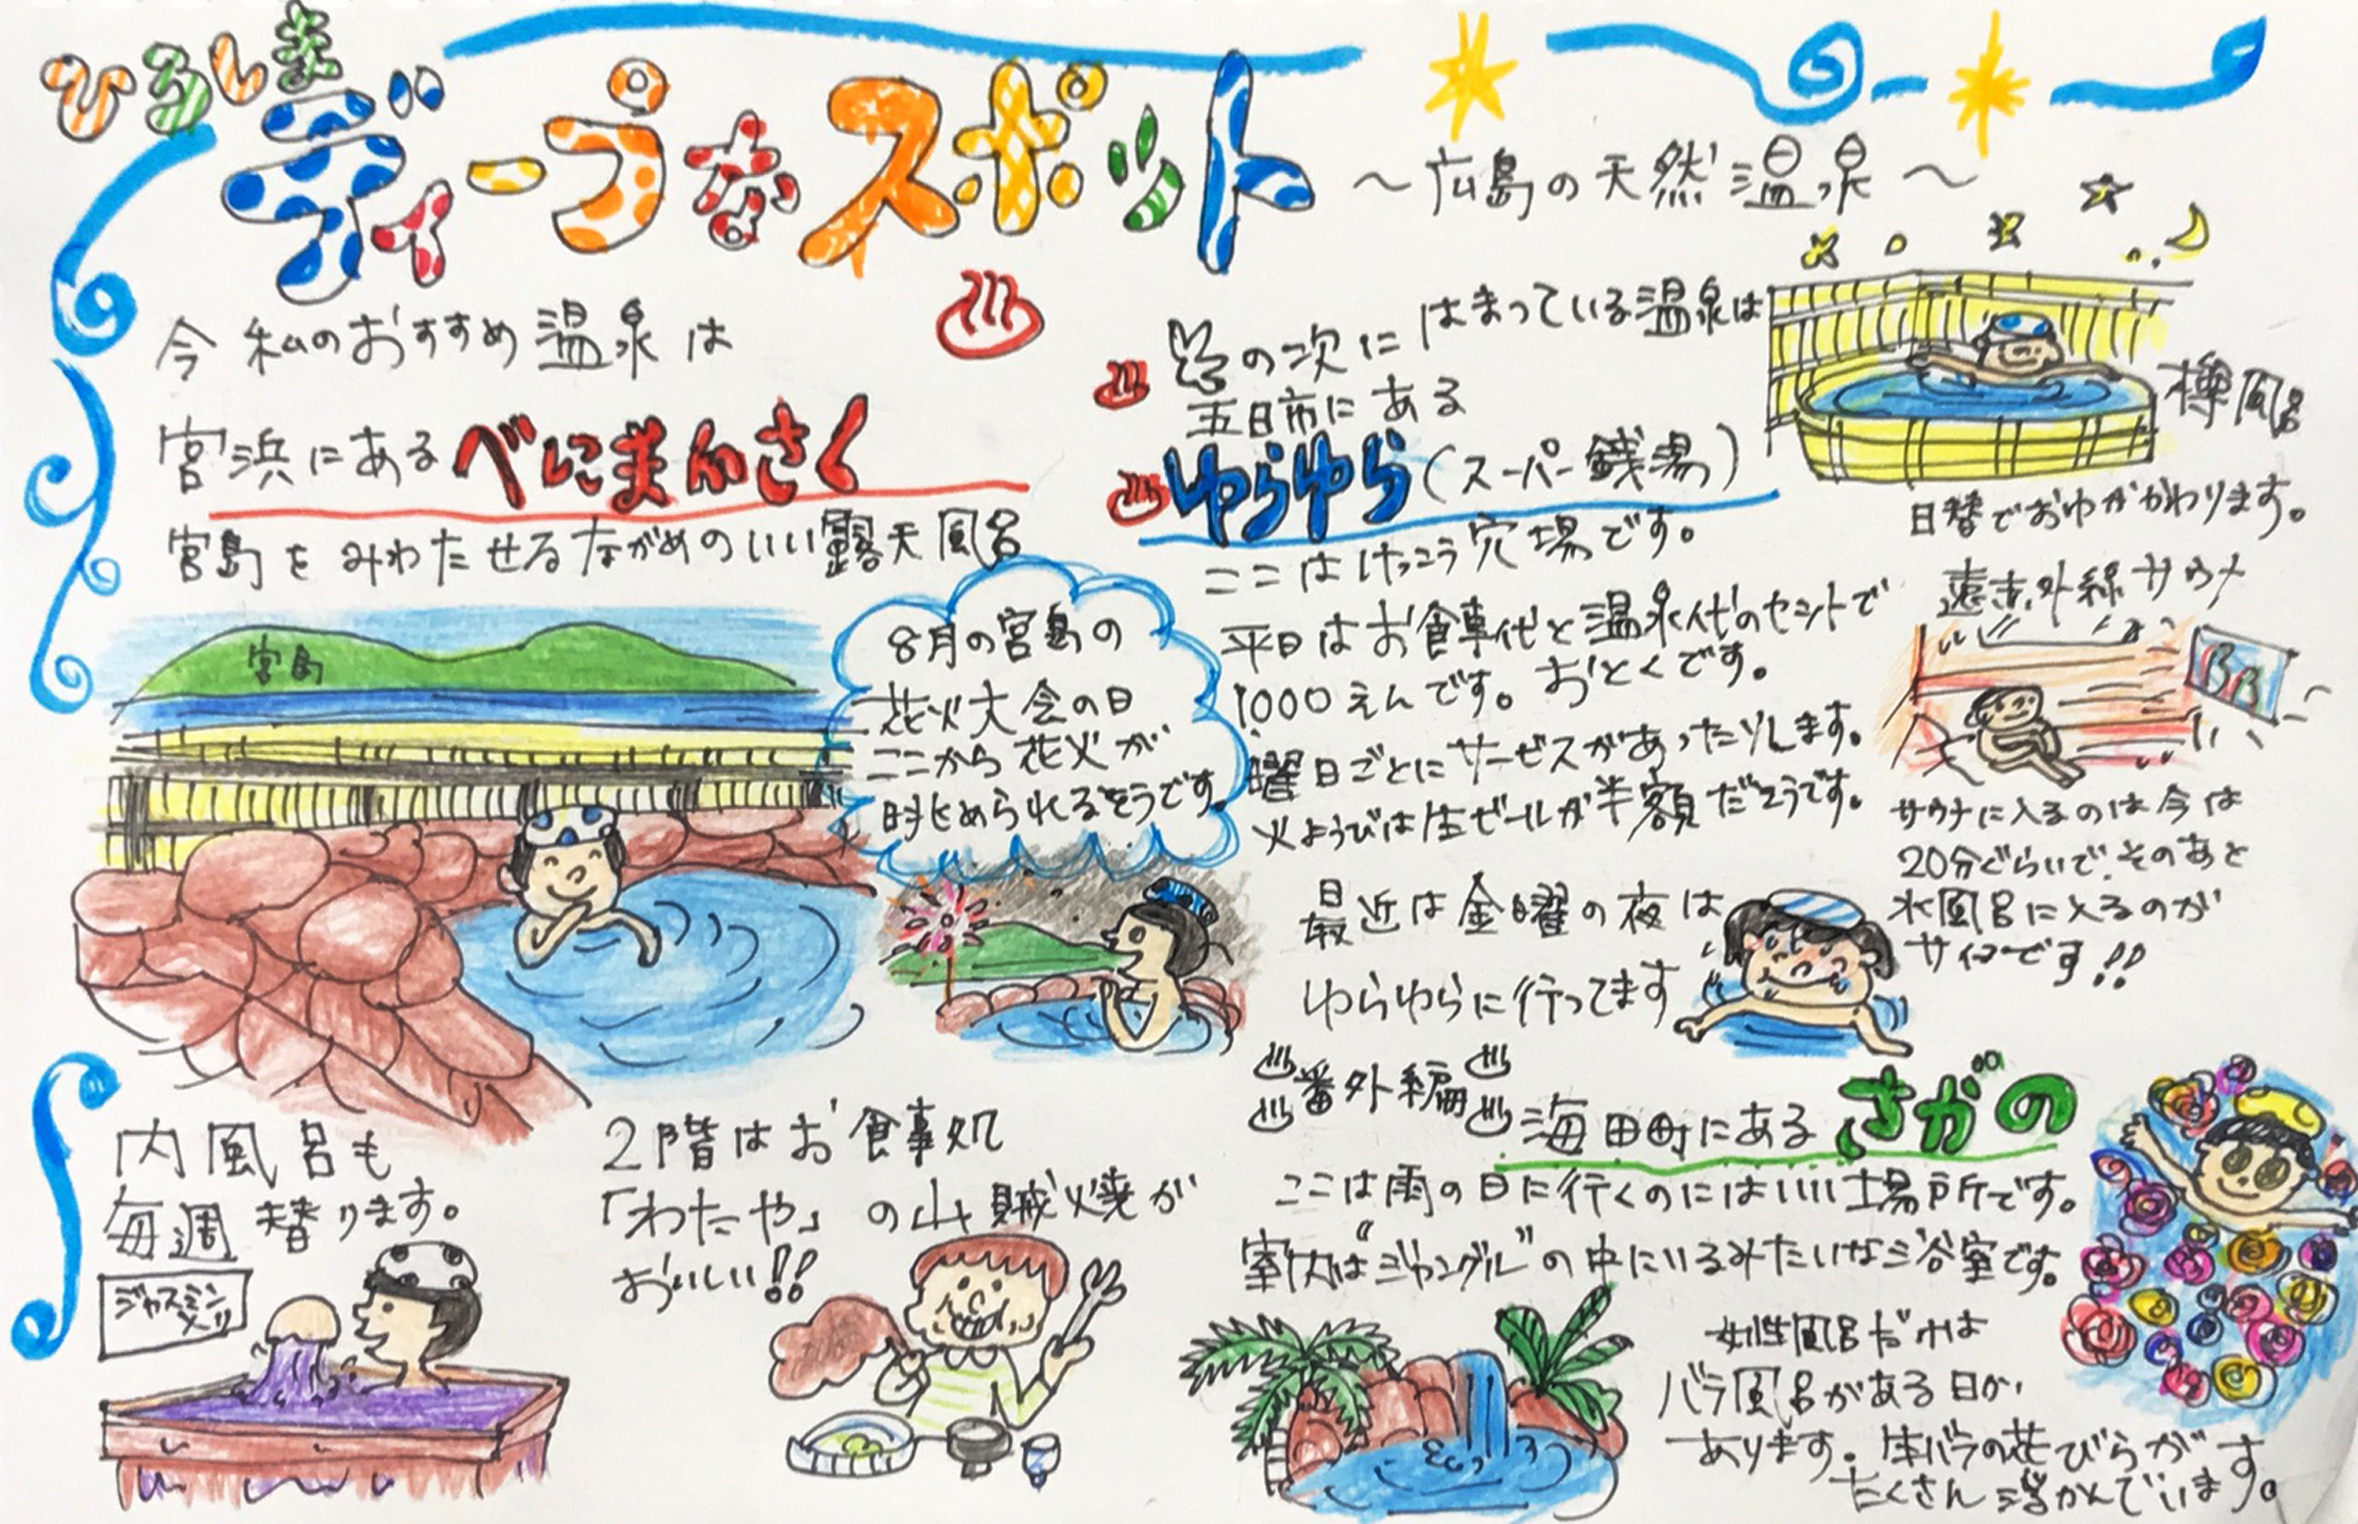 ひろしま
ディープなスポット
〜広島の天然温泉〜
今私のおすすめ温泉は
宮浜にあるべにまんさく
宮島をみわたせるながめのいい露天風呂
宮島
8月の宮島の
花火大会の日
ここから花火が
眺められるそうです。
内風呂も
毎週替ります。
ジャスミン
2階はお食事処
「わたや」の山賊焼が
おいしい!!
の次にはまっている温泉は
五日市にある
ゆらゆら(スーパー銭湯)
ここはけっこう穴場です。
平日はお食事代と温泉代のセットで
1000えんです。おとくです。
曜日ごとにサービスがあったりします。
火ようびは生ビールが半額だそうです。
最近は金曜の夜は
ゆらゆらに行ってます
樽風呂
日替でおゆがかわります。
遠赤外線サウナ
サウナに入るのは今は
20分ぐらいで、そのあと
水風呂に入るのが
サイコーです!!
番外編
海田町にあるさがの
ここは雨の日に行くのにはいい場所です。
室内は"ジャングル"の中にいるみたいな浴室です。
女性風呂だけは
バラ風呂がある日が
あります。生バラの花びらが
たくさん浮かんでいます。